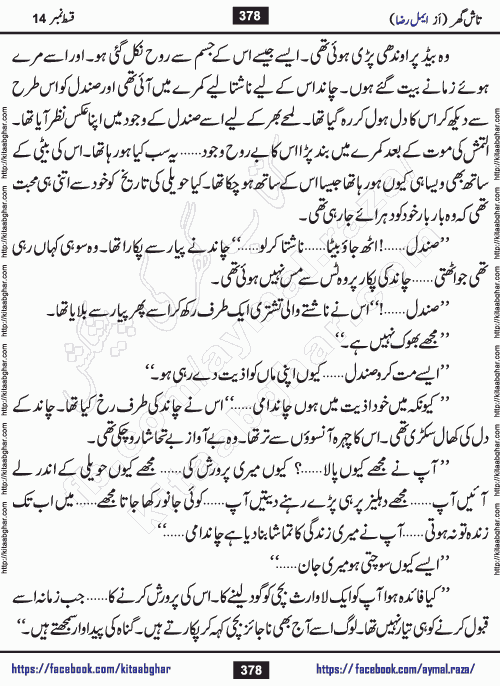 قسط نمبر 14
378
تاش گھر (از ایمل رضا)
وہ بیڈ پر اوندھی پڑی ہوئی تھی۔ ایسے جیسے اس کے جسم سے روح نکل گئی ہو۔ اور اسے مرے
ہوئے زمانے بیت گئے ہوں۔ چاند اس کے لیے ناشتا لیے کمرے میں آئی تھی اور صندل کو اس طرح
سے دیکھ کر اس کا دل ہول کر رہ گیا تھا۔ لمحے بھر کے لیے اسے صندل کے وجود میں اپنا عکس نظر آیا تھا۔
التمش کی موت کے بعد کمرے میں بند پڑا اس کا بے روح وجود...... یہ سب کیا ہو رہا تھا۔ اس کی بیٹی کے
ساتھ بھی ویسا ہی کیوں ہو رہا تھا جیسا اس کے ساتھ ہو چکا تھا۔ کیا حویلی کی تاریخ کو خود سے اتنی ہی محبت
تھی کہ وہ بار بار خود کو دہرائے جا رہی تھی۔
’’صندل......! اٹھ جاؤ بیٹا...... ناشتا کر لو......‘‘ چاند نے پیار سے پکارا تھا۔ وہ سو ہی کہاں رہی
تھی جو اٹھتی...... چاند کی پکار پر وہ ٹس سے مس نہیں ہوئی تھی۔
’’صندل......!‘‘ اس نے ناشتے والی تشتری ایک طرف رکھ کر اسے پھر پیار سے بلایا تھا۔
’’مجھے بھوک نہیں ہے۔‘‘
’’ایسے مت کرو صندل...... کیوں اپنی ماں کو اذیت دے رہی ہو۔‘‘
’’کیونکہ میں خود اذیت میں ہوں چاند امی......‘‘ اس نے چاند کی طرف رخ کیا تھا۔ چاند کے
دل کی کھال سکڑی تھی۔ اس کا چہرہ آنسوؤں سے تر تھا۔ وہ بے آواز بے تحاشا رو چکی تھی۔
’’آپ نے مجھے کیوں پالا......؟ کیوں میری پرورش کی...... مجھے کیوں حویلی کے اندر لے
آئیں آپ...... مجھے دہلیز پر ہی پڑے رہنے دیتیں آپ...... کوئی جانور کھا جاتا مجھے...... میں اب تک
زندہ تو نہ ہوتی...... آپ نے میری زندگی کا تماشا بنا دیا ہے چاند امی......‘‘
’’ایسے کیوں سوچتی ہو میری جان......‘‘
’’کیا فائدہ ہوا آپ کو ایک لاوارث بچی کو گود لینے کا۔ اس کی پرورش کرنے کا...... جب زمانہ اسے
قبول کرنے کو ہی تیار نہیں تھا۔ لوگ اسے آج بھی ناجائز بچی کہہ کر پکارتے ہیں۔ گناہ کی پیداوار سمجھتے ہیں۔‘‘
http://kitaabghar.com http://kitaabghar.com http://kitaabghar.com http://kitaabghar.com http://kitaabghar.com
http://kitaabghar.com http://kitaabghar.com http://kitaabghar.com http://kitaabghar.com http://kitaabghar.com
https://facebook.com/kitaabghar
378
https://facebook.com/aymal.raza/